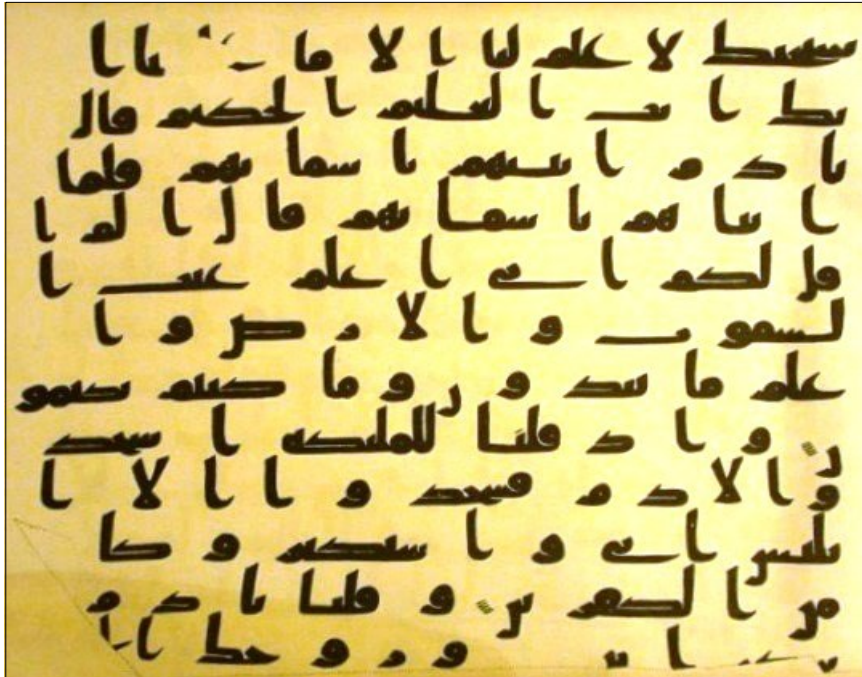 سبحنك لا علم لنا ا لا ما نا ا
نك ا نت ا لعليم ا لحكيم قال
يا د م ا نبئهم با سمائهم فلما
ا نبا هم با سمائهم قا ل ا لم ا
قل لكم ا ني ا علم غيب ا
لسموت و ا لا ر ض و ا
علم ما تبد و ن و ما كنتم تكتمو
ن و ا ذ قلنا للملئكة ا سجد
و ا لا د م فسجد و ا ا لا ا
بليس ا بي و ا ستكبر و كا
من ا لكفر ين و قلنا يا د م
ا نت و ز و جك ا